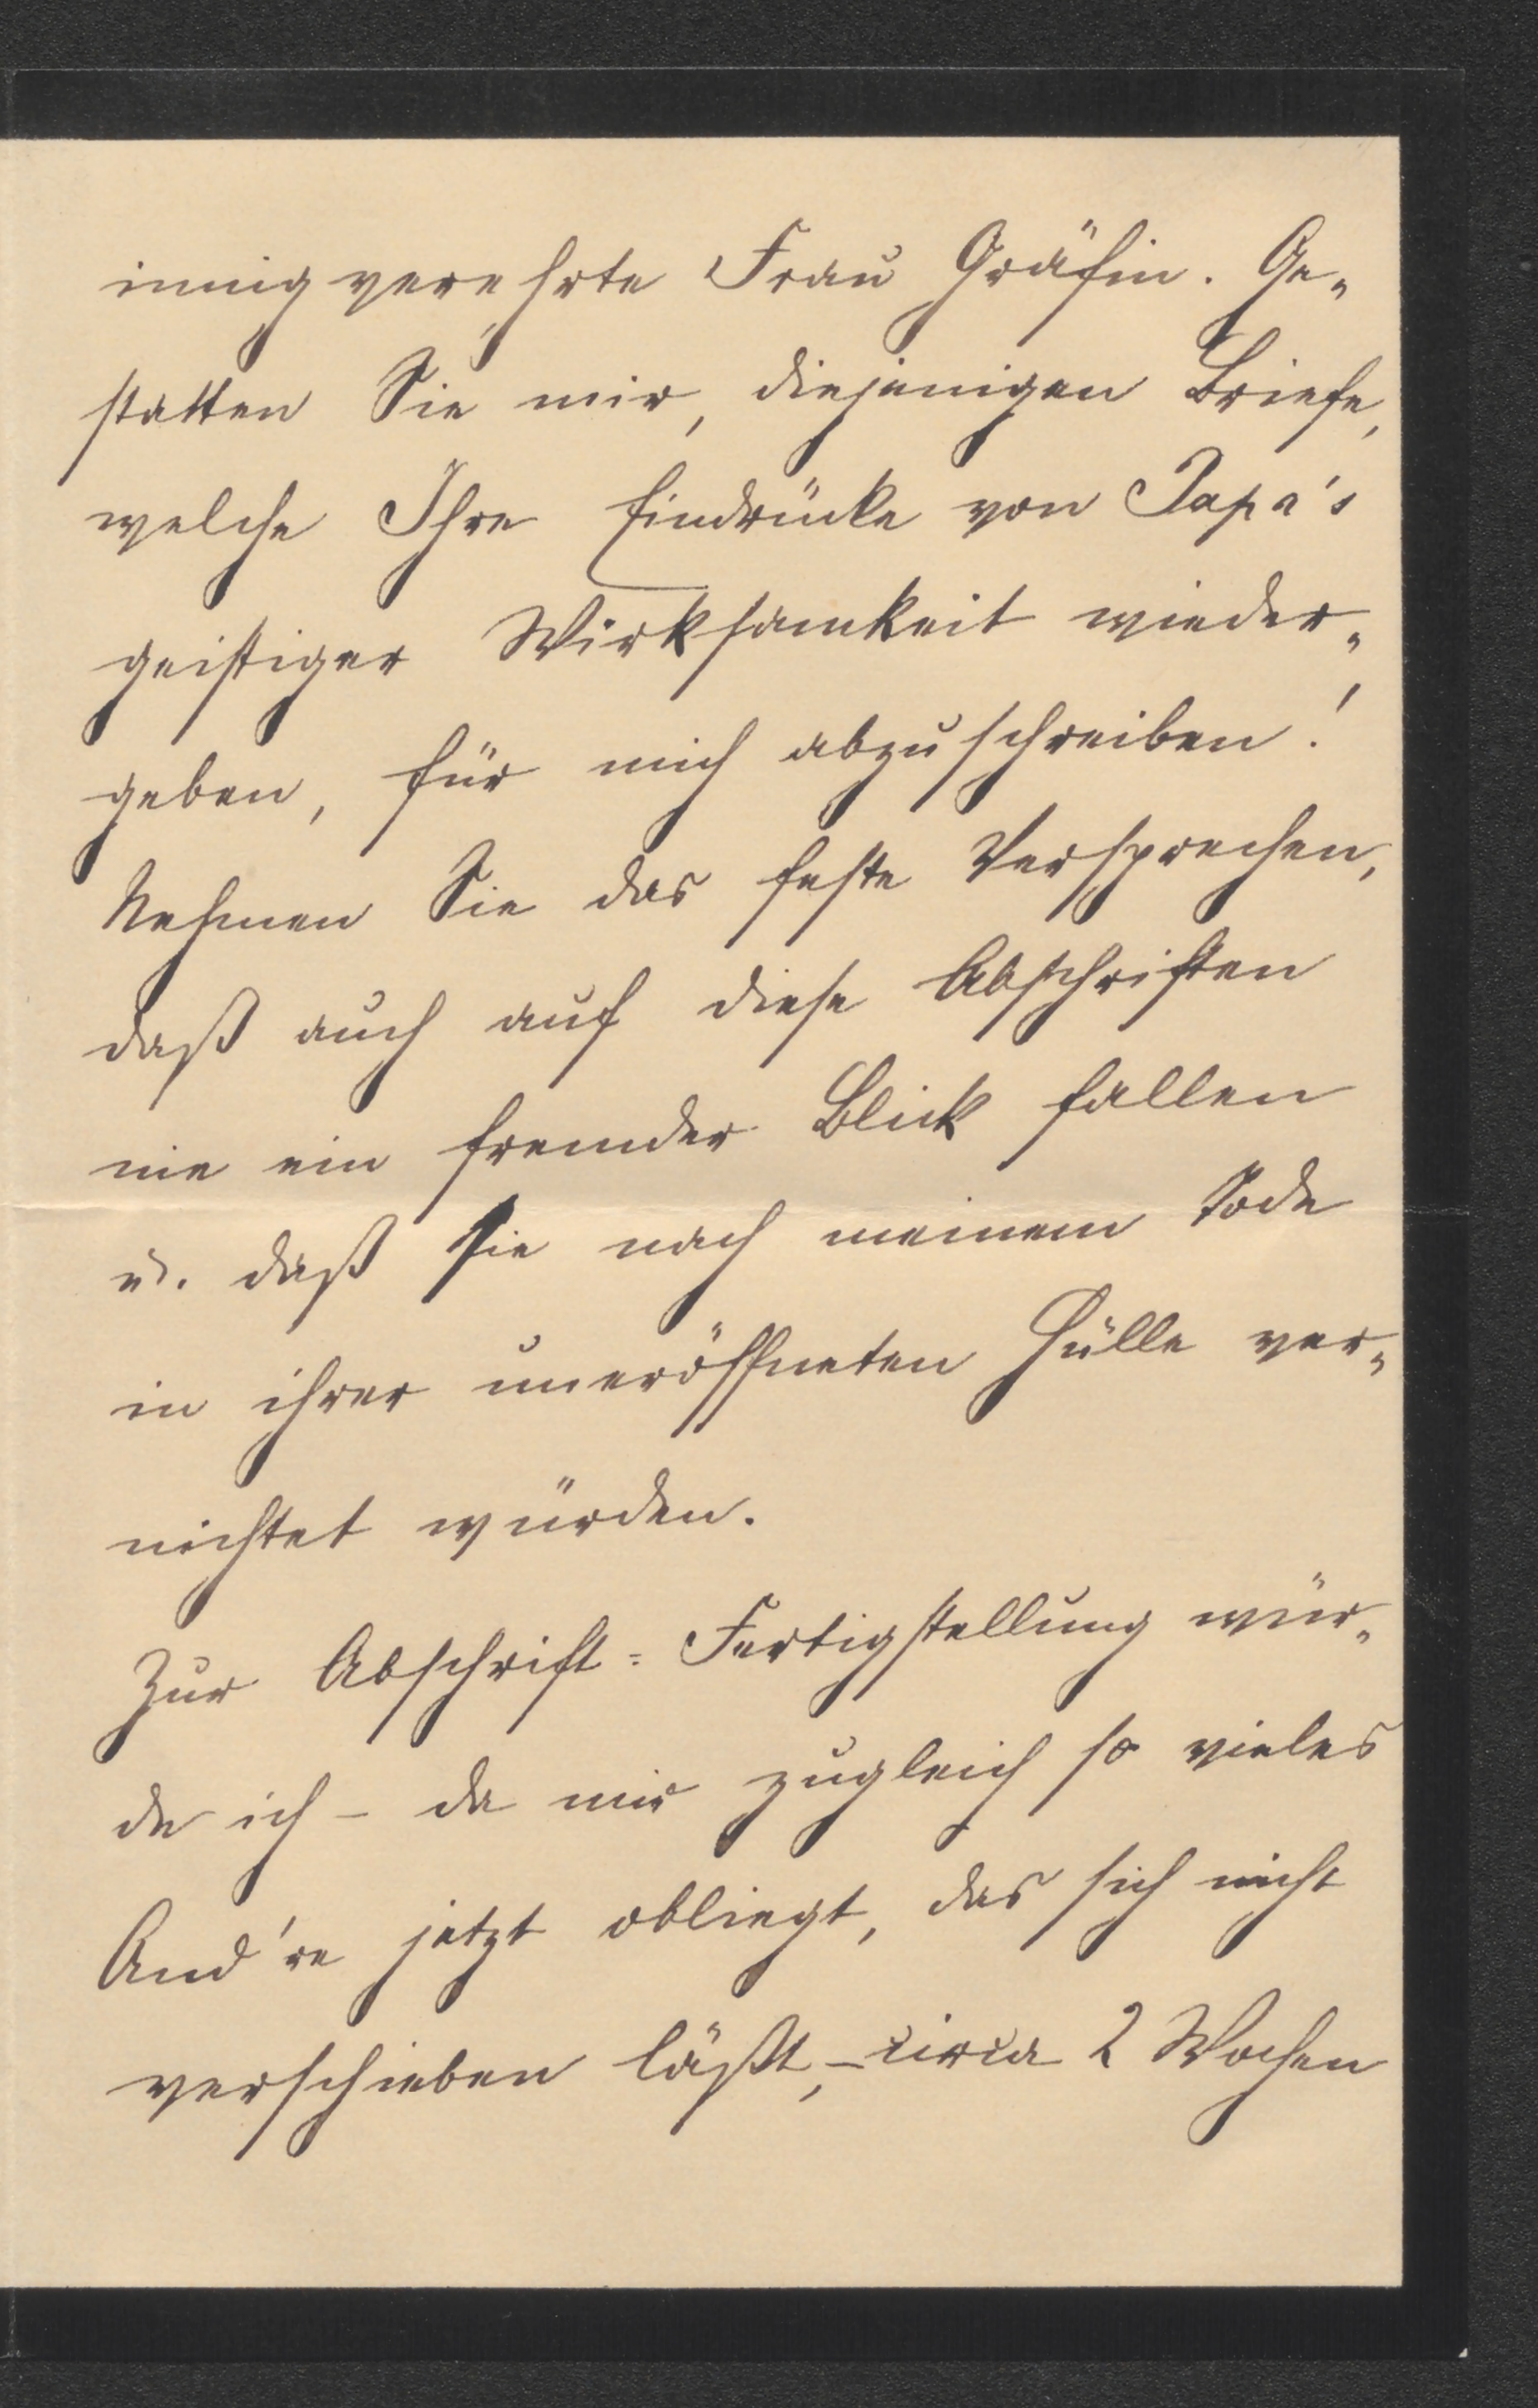 innig verehrte Frau Gräfin. Ge-
statten Sie mir, diejenigen Briefe,
welche Ihre Eindrücke von Papa's
geistiger Wirksamkeit wieder-
geben, für mich abzuschreiben!
Nehmen Sie das feste Versprechen,
daß auch auf diese Abschriften
nie ein fremder Blick fallen
u. daß sie nach meinem Tode
in ihrer uneröffneten Hülle ver-
nichtet würden.
Zur Abschrift-Fertigstellung wür-
de ich – da mir zugleich so vieles
And're jetzt obliegt, das sich nicht
verschieben läßt, – circa 2 Wochen